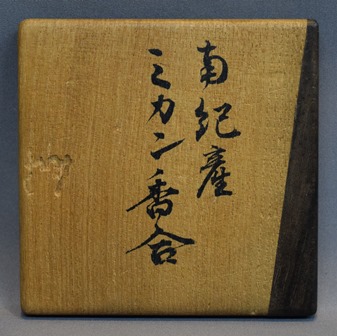 南紀産
ミカン香合